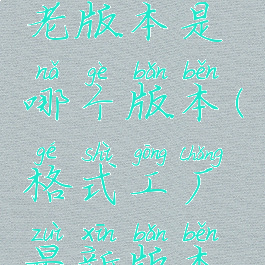 老版本是
nǎ gè bǎn běn
哪个版本(
gé shì gōng chǎng
格式工厂
zuì xīn bǎn běn
最新版本